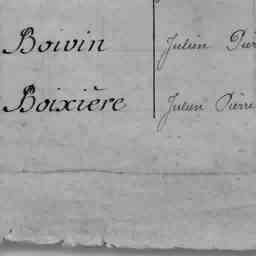 Boivin Julien
Boixière Julien Pierre